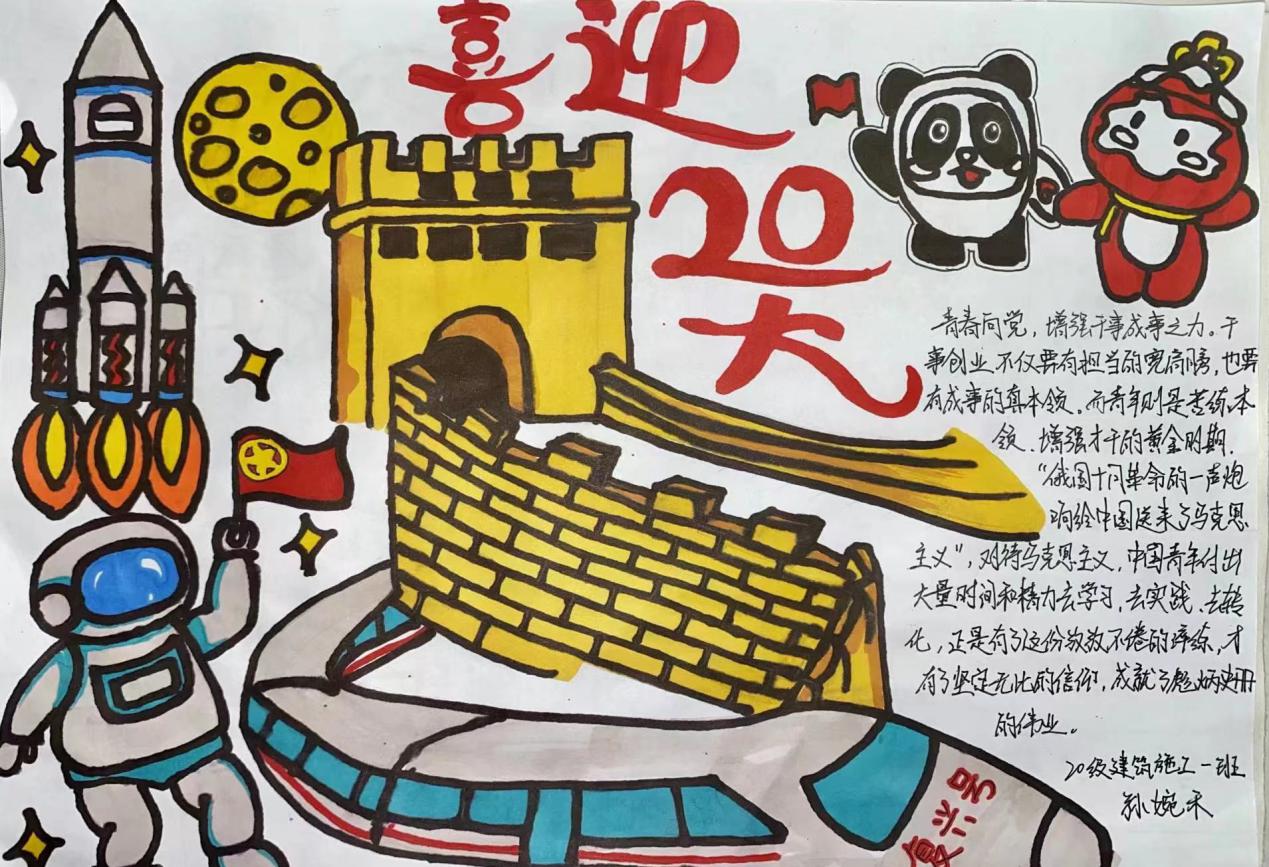 喜迎
20
大
青春向党，增强干事成事之力。干
事创业不仅要有担当的宽肩膀，也要
有成事的真本领。而青年则是苦练本
领、增强才干的黄金时期.
“俄国十月革命的一声炮
响给中国送来了马克思
主义”，对待马克思主义，中国青年付出
大量时间和精力去学习、去实践、去转
化，正是有了这份孜孜不倦的淬练，才
有了坚定无比的信仰，成就了彪炳史册
的伟业。
20级建筑施工一班
孙婉禾
复兴号